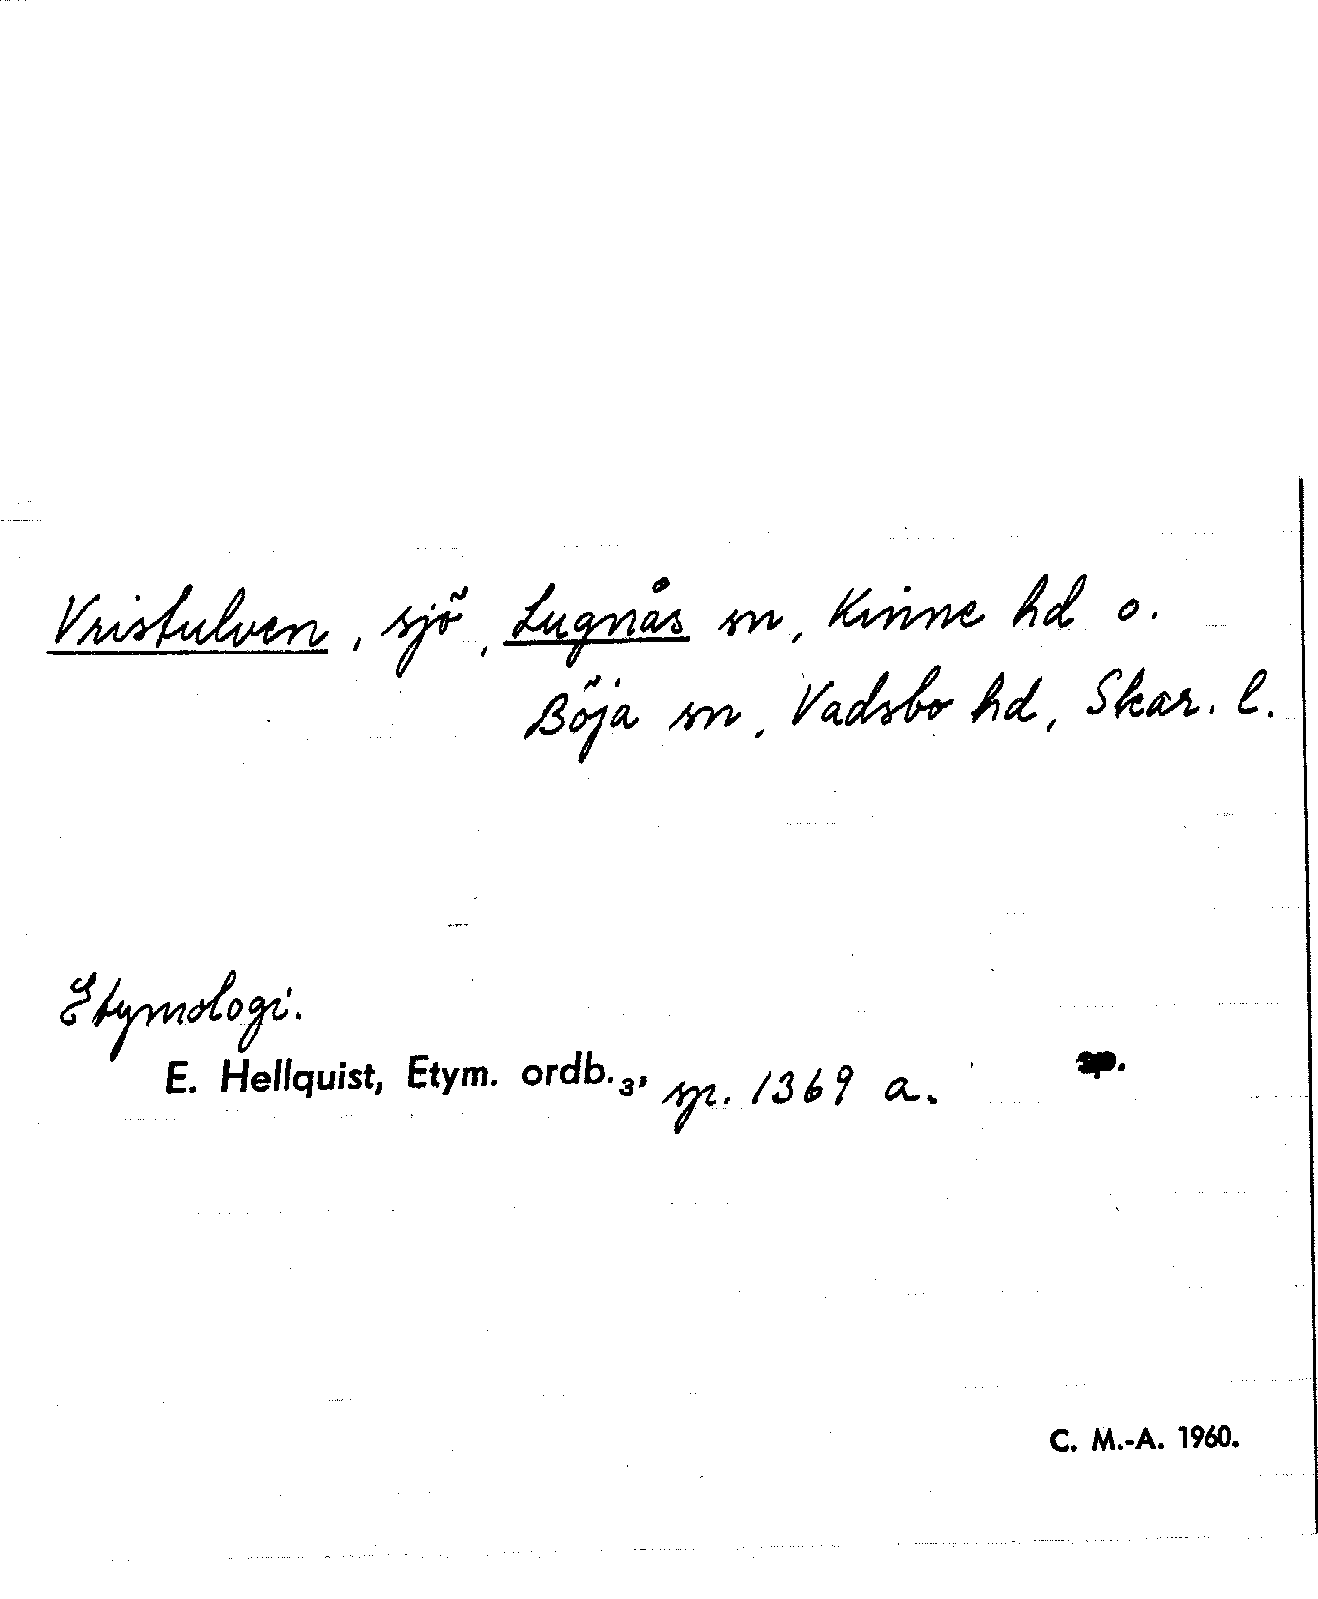 Vristulven, sjö, Lugnås sn, Kinne hd o.
Böja sn, Vadsbo hd, Skar. l.
Etymologi.
E. Hellquist, Etym. ordb.₃, sp. 1369 a. sp.
C. M.-A. 1960.